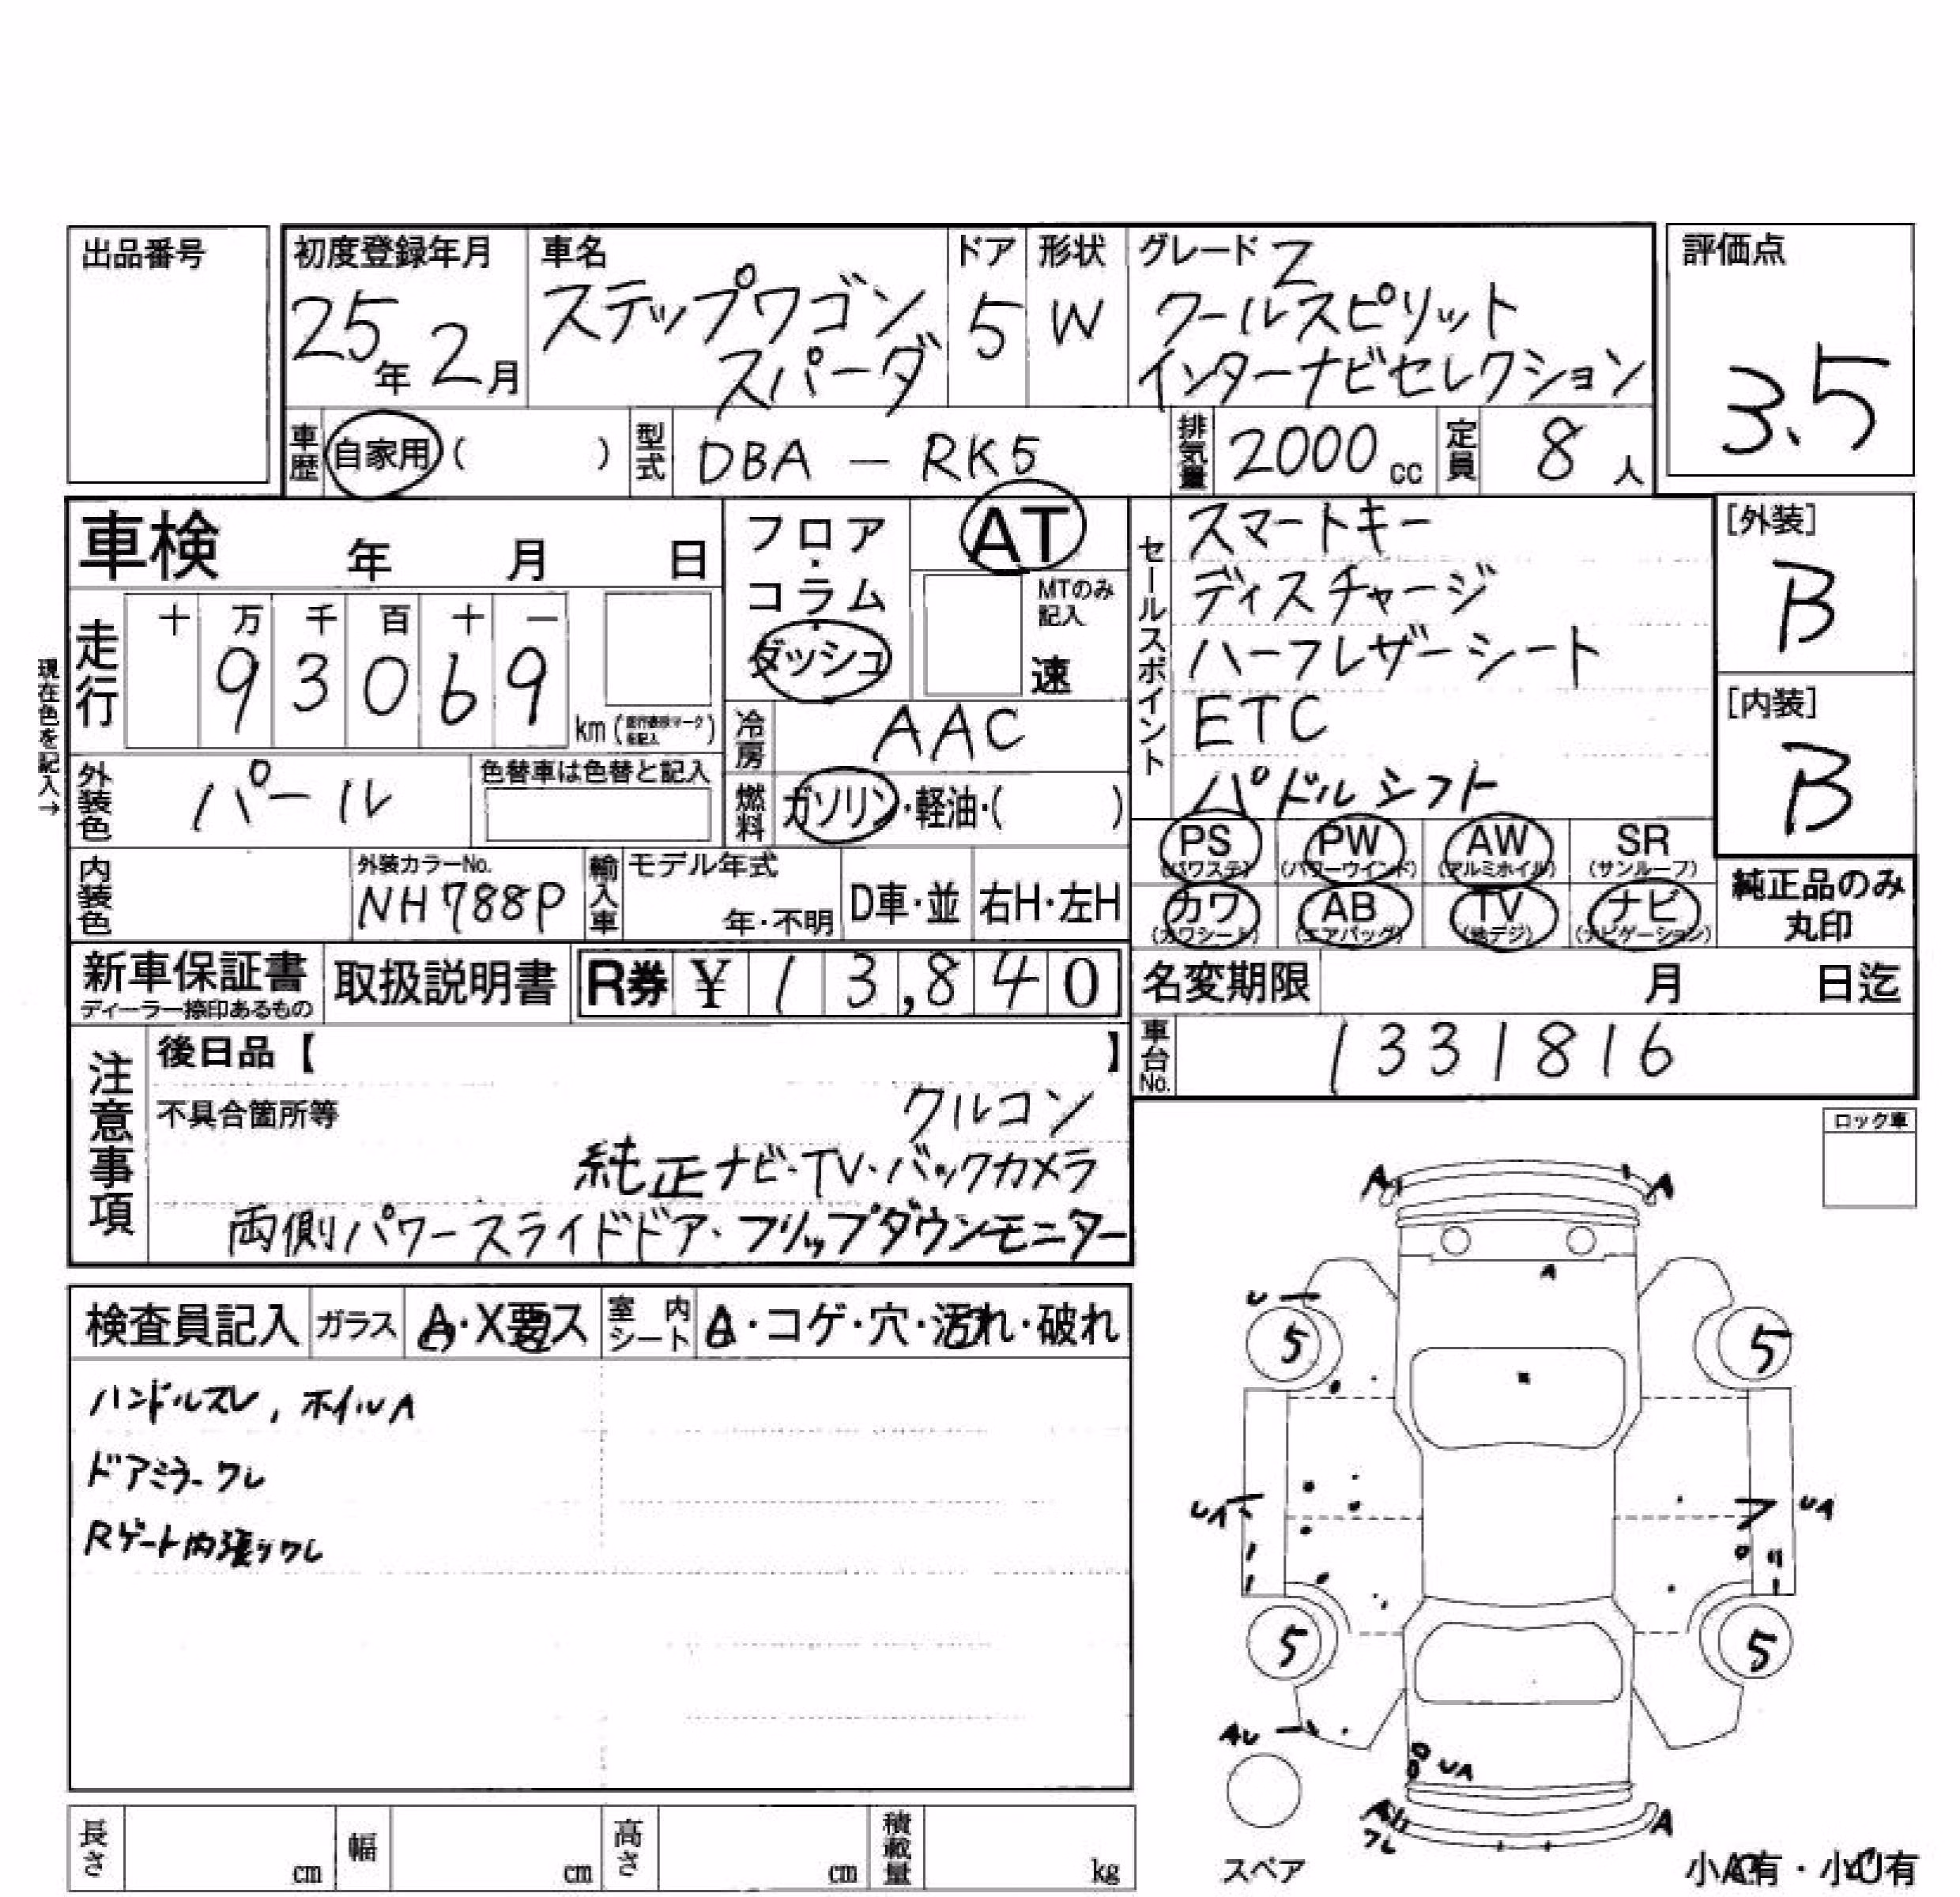 出品番号
初度登録年月
25年2月
車名
ステップワゴン
スパーダ
ドア
5
形状
W
グレード Z
クールスピリット
インターナビセレクション
評価点
3.5
車歴 自家用 ( )
型式 DBA - RK5
排気量 2000 cc
定員 8 人
車検 年 月 日
フロア・コラム・ダッシュ
AT
MTのみ記入
速
セールスポイント
スマートキー
ディスチャージ
ハーフレザーシート
ETC
パドルシフト
[外装]
B
[内装]
B
現在色を記入→
走行
十 万 千 百 十 一
9 3 0 6 9
km
冷房 AAC
外装色 パール
色替車は色替と記入
燃料 ガソリン・軽油・( )
PS (パワステ)
PW (パワーウインド)
AW (アルミホイル)
SR (サンルーフ)
カワ (カワシート)
AB (エアバッグ)
TV (地デジ)
ナビ (ナビゲーション)
純正品のみ
丸印
内装色
外装カラーNo.
NH788P
輸入車
モデル年式
年・不明
D車・並
右H・左H
新車保証書
ディーラー捺印あるもの
取扱説明書
R券 ¥ 1 3,8 4 0
名変期限 月 日迄
車台No. 1331816
注意事項
後日品【 】
不具合箇所等
クルコン
純正ナビ・TV・バックカメラ
両側パワースライドドア・フリップダウンモニター
ロック車
検査員記入
ガラス A・X要ス
室内シート A・コゲ・穴・汚れ・破れ
ハンドルスレ, ホイルA
ドアミラーワレ
Rゲート内張りワレ
A A
A
U
5 5
UA UA
5 5
AU
UA
A A
ワレ
スペア
小A有・小U有
長さ cm
幅 cm
高さ cm
積載量 kg